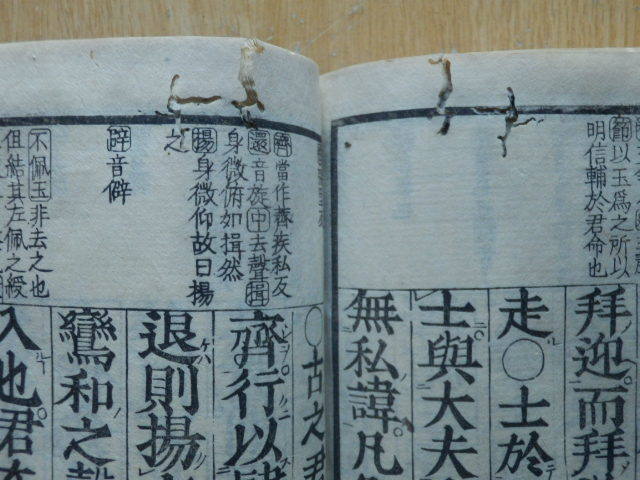 節以玉爲之所以
明信輔於君命也
拜迎而拜
走○士於
士與大夫
無私諱凡
齊當作薺疾私反
還音旋中去聲揖
身微俯如揖然
揚身微仰故曰揚
之
辟音僻
不佩玉非去之也
但結其左佩之綬
○古之君
齊行以
退則揚
鸞和之聲
入也君